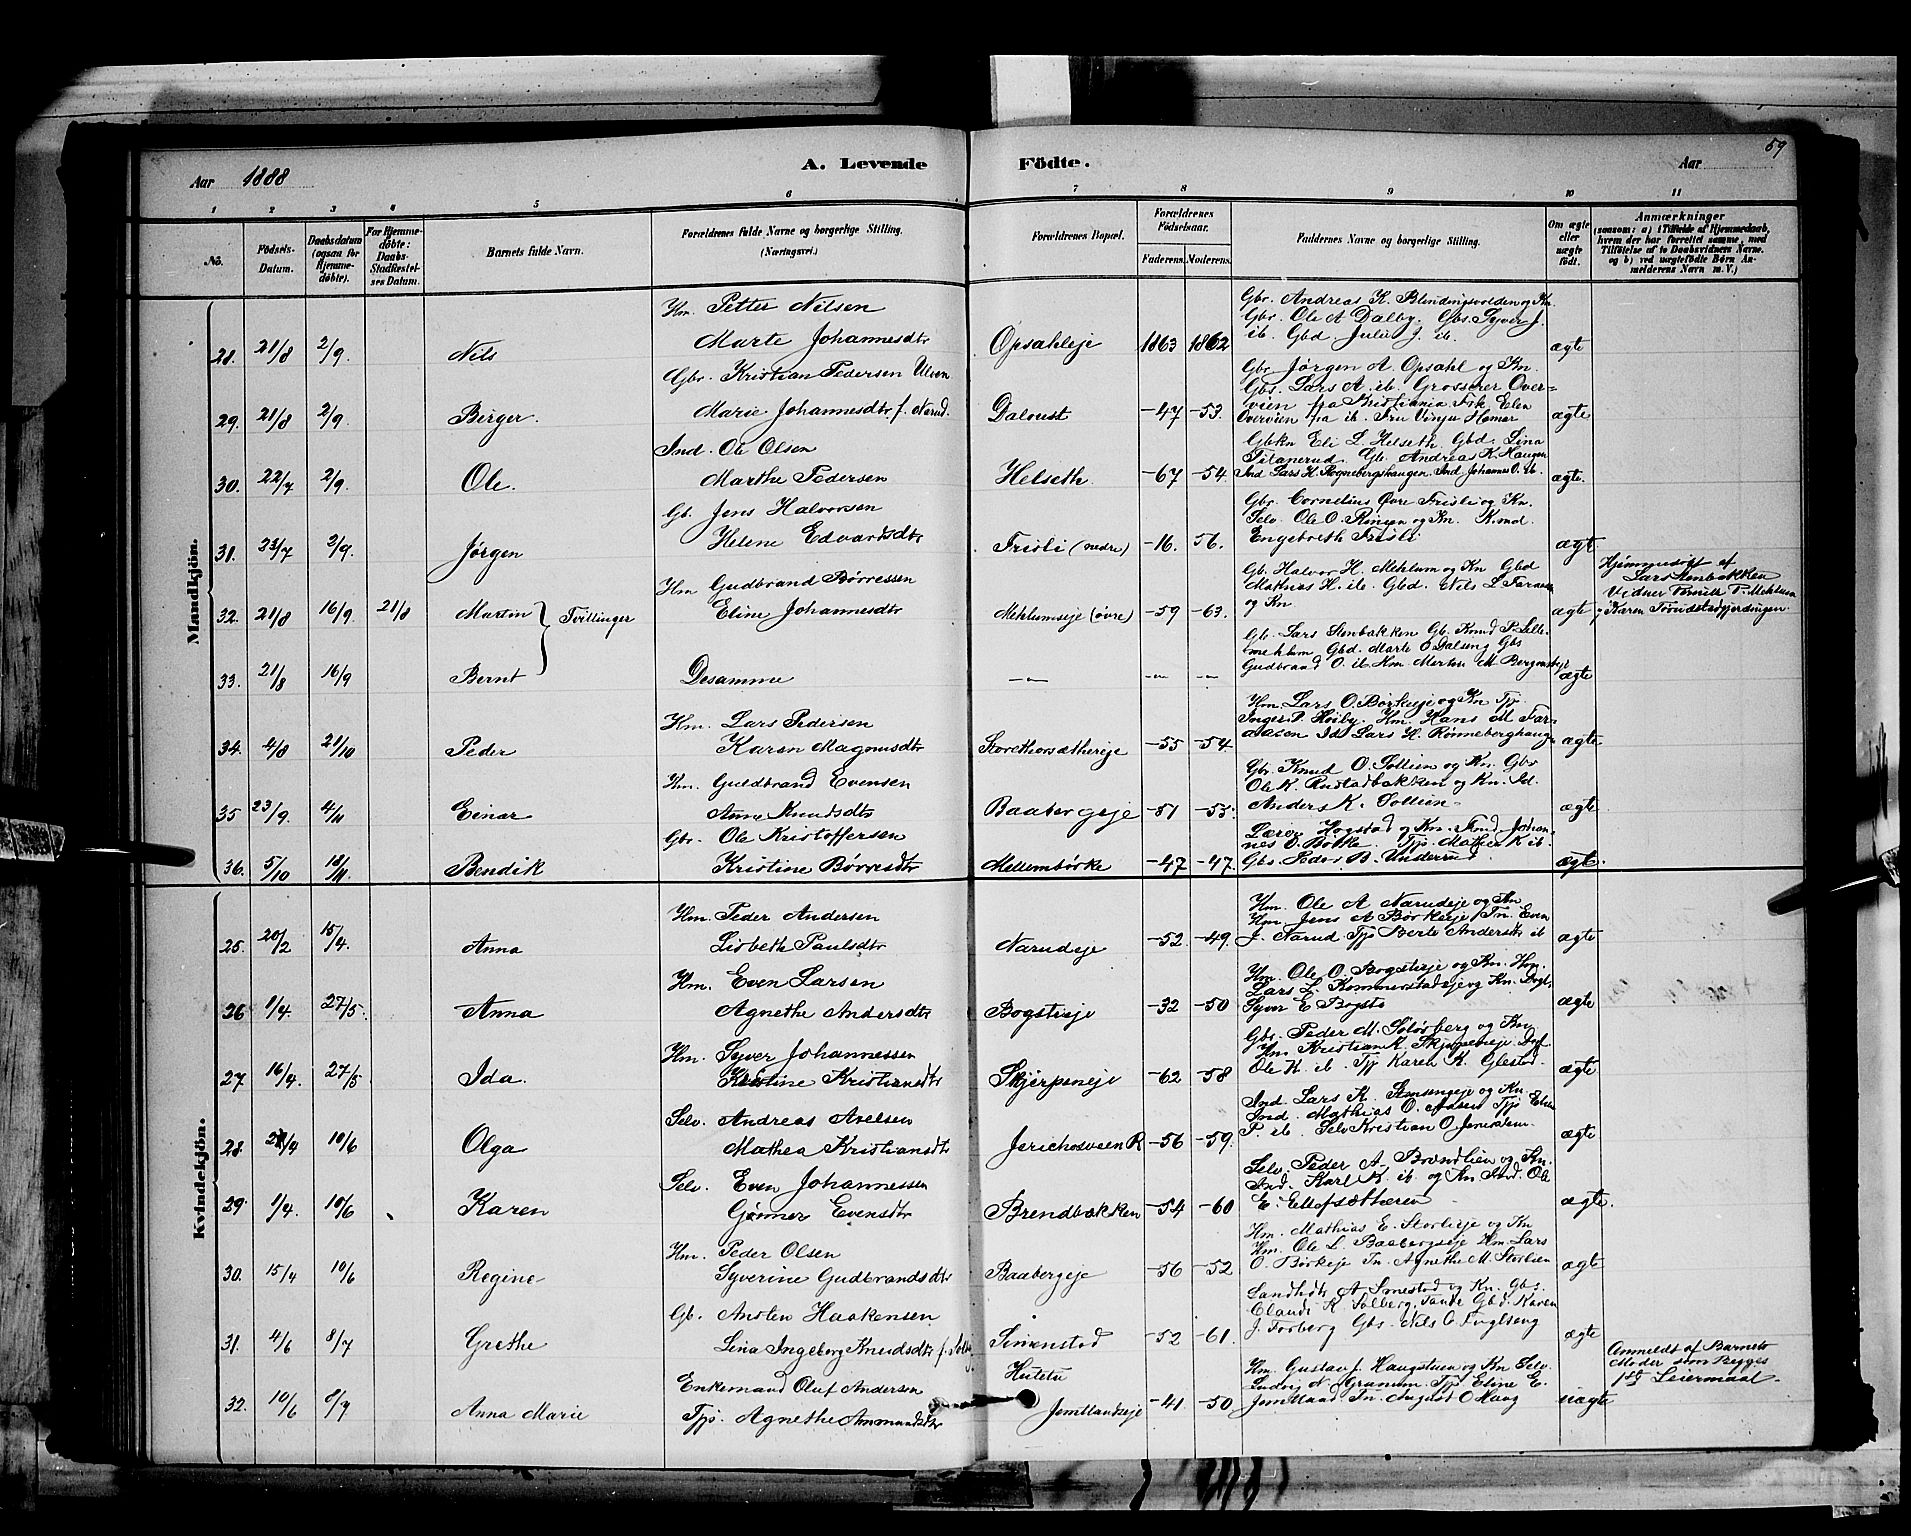 59
Aar 1888
A. Levende Födte.
Aar
1 2 3 4 5 6 7 8 9 10 11
No.
Födsels-Datum.
Daabsdatum (ogsaa for Hjemme-döbte).
For Hjemme-döbte: Daabs-Stadfæstel-ses Datum.
Barnets fulde Navn.
Forældrenes fulde Navne og borgerlige Stilling. (Næringsvei.)
Forældrenes Bopæl.
Forældrenes Födselsaar.
Faderens. Moderens.
Faddernes Navne og borgerlige Stilling.
Om ægte eller uægte födt.
Anmærkninger
(saasom: a) i Tilfælde af Hjemmedaab, hvem der har forrettet samme, med Tilföielse af to Daabsvidners Navne. og b) ved uægtefödte Börn Anmelderens Navn m. V.)
Mandkjön.
28. 21/8 2/9. Nils
Hm. Petter Nilsen
Marte Johannesdtr
Opsahleje 1863 1862
Gbr. Andreas K. Blindingsvolden og Kn.
Gbr. Ole A Dalby. Gbs. Syver J.
ib. Gbd Julie J. ib.
ægte
29. 21/8 2/9. Birger.
Gbr. Kristian Pedersen Ulven
Marie Johannesdtr f. Narud.
Daloust -47 -53.
Gbr Jørgen A. Opsahl og Kn.
Gbs. Lars A. ib. Grosserer Over=
vien fra Kristiania Frk Elen
Overvien fra ib. Fru Hamar
ægte
30. 22/7 2/9. Ole.
Ind. Ole Olsen
Marthe Pedersen
Helseth. -67 -54.
Gbkn Eli L. Helseth. Gbd. Lina
Andreas K. Haugen
Ind Lars H. Rognebergshaugen. Ind Johannes O. ib.
ægte.
31. 23/7 2/9. Jørgen
Gb. Jens Halvorsen
Helene Edvardsdtr
Frisli (nedre) -16. 56.
Gbr. Cornelius Øvre Frisli og Kn.
Selv. Ole O. Ringen og Kn. K.md.
Engebreth Frisli
ægte
32. 21/8 16/9. 21/8 Martin } Tvillinger
Hm Gudbrand Børressen
Eline Johannesdtr
Mehlumseje (øvre) -59 -63.
Gb. Halvor H. Mehlum og Kn Gbd
Mathias H. ib. Gbd. Nils L
og Kn
ægte
Hjemmedøbt af
Lars Stenbakken
Vidner P. Mehlum
Karen
33. 21/8 16/9 Bernt
Desamme
-"- -"- -"-
Gb. Lars Stenbakken Gb. Knud P. Lille-
mehlum Gbd. Marte O Dalseng Gbs
Gudbrand O. ib Hm Morten M
ægte
34. 4/8 21/10 Peder
Hm. Lars Pedersen
Karen Magnusdtr
Storethorsæthereje -55 -54.
Hm Lars O. Børkeeje og Kn Tjp.
Inger P. Høiby. Hm. Hans M
Id Lars H. Rønneberghaugn
ægte
35 23/9. 4/11 Einar
Hm. Guldbrand Evensen
Anne Knudsdtr
Baabergseje -51 -53.
Gbr. Knud O. Sollien og Kn. Gbr
Ole K. Rustadbakken og Kn. Id.
Anders K. Sollien
ægte
36. 5/10 18/11 Bendik
Gbr. Ole Kristoffersen
Kristine Børresdtr
Mellembörke -47 -47.
Lærer Hogstad og Kn. Johan-
nes O. Børke. Tjp. Mathea K ib.
Gbs. Peder B. Underrud
ægte.
Kvindekjön.
25. 20/2 15/4. Anna
Hm. Peder Andersen
Lisbeth Paulsdtr
Narudeje -52 -49.
Hm. Ole A Narudeje og Kn
Hm. Jens A Børkeeje. Tn. Even
J. Narud Tjp Berte Andersdtr ib
ægte
26 1/4. 27/5. Anna
Hm. Even Larsen
Agnethe Andersdtr
Bogstieje -32 -50
Hm. Ole O. Bogstieje og Kn. Hm.
Lars L. Kommerstadeje og Kn. Dgl.
Syver E Bogsti
ægte
27. 16/4. 27/5 Ida.
Hm. Syver Johannessen
Kristine Kristiansdtr
Skjerpeneje -62 -58
Gbs. Peder M. Sølvsberg og Kn
Hm Kristian K. Skjerpeneje
Ole K. ib. Tjp Karen K. Glestad.
ægte
28. 2/4 10/6 Olga
Selv. Andreas Axelsen
Mathea Kristiansdtr
Jerichosveien R -56 -59.
Ind. Lars K. Stensengeje og Kn.
Ind. Mathias O. Tjp Elen
P. ib. Selv Kristian O Jerusalem
ægte
29. 1/4. 10/6 Karen
Selv. Even Johannessen
Gunner Evensdtr
Brendbækken -54 -60
Selv. Peder A. Brændlien og Kn.
Ind. Karl K. ib og Kn Ind. Ole
E. Ellefsætheren
ægte.
30. 15/4 10/6 Regine
Hm. Peder Olsen
Syverine Gudbrandsdtr
Baabergeje -56 -52
Hm. Mathias E. Storlieje og Kn
Hm. Ole L. Baabergseje Hm Lars
O. Børkeje Tn. Agnethe M. Storlien
ægte
31. 4/6 8/7 Grethe
Gb. Ansten Haakensen
Lina Ingeborg Knudsdtr f. Solbg
Simenstad -52 -61.
A. Simestad og Kn. Gbs.
Claude K. Solberg, Gbd. Karen
J. Forberg Gbs. Nils O. Fuglseng
ægte
32. 10/6 8/7 Anna Marie
Enkemand Oluf Andersen
Tjp. Agnethe Ammundsdtr
Hutetu
Jemtlandseje -41 -50
Hm. Gustav J. Haugstuen og Kn Selv.
Ludvig N. Granum. Tjp Eline E.
Jemtland Tn. August O Haug
uægte
Anmeldt af Barnets
Moder som Begges
1ste Leiermaal.